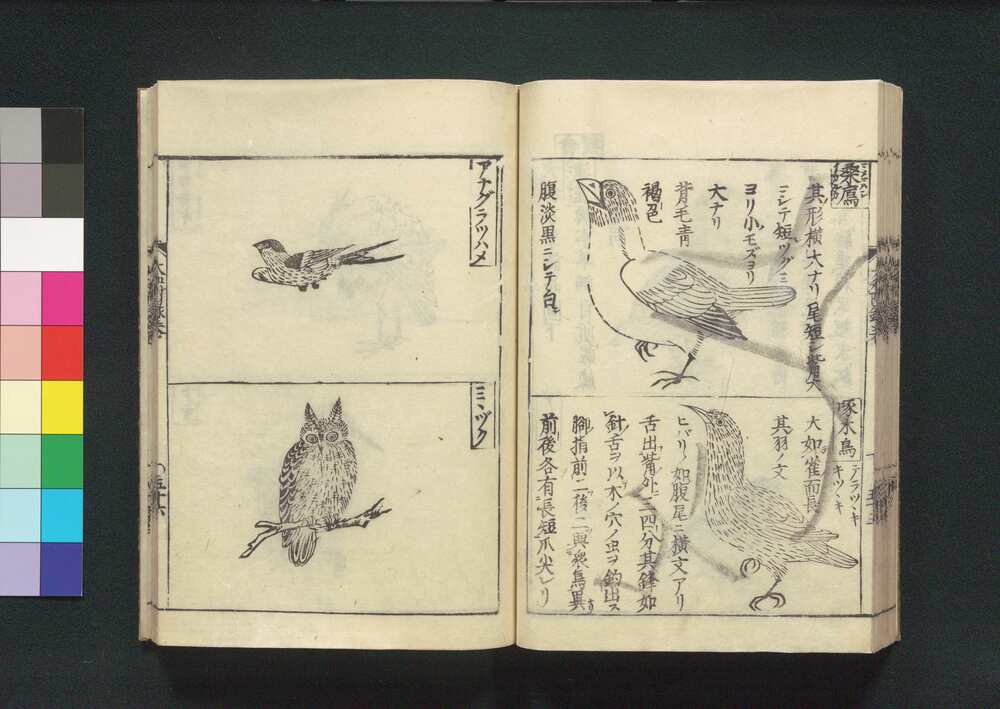 桑鳸
其形横大ナリ尾短シ觜大
ニシテ短ツグミ
ヨリ小モズヨリ
大ナリ
背毛青
褐色
腹淡黒ニシテ白
啄木鳥
テラツヽキ
キツヽキ
大如雀而長
其羽ノ文
ヒバリノ如腹尾ニ横文アリ
舌出觜外三四分其鋒如
針舌ヲ以木ノ穴ノ虫ヲ釣出ス
脚指前二後二與衆鳥異
前後各有長短爪尖レリ
アナグラツハメ
ミミヅク